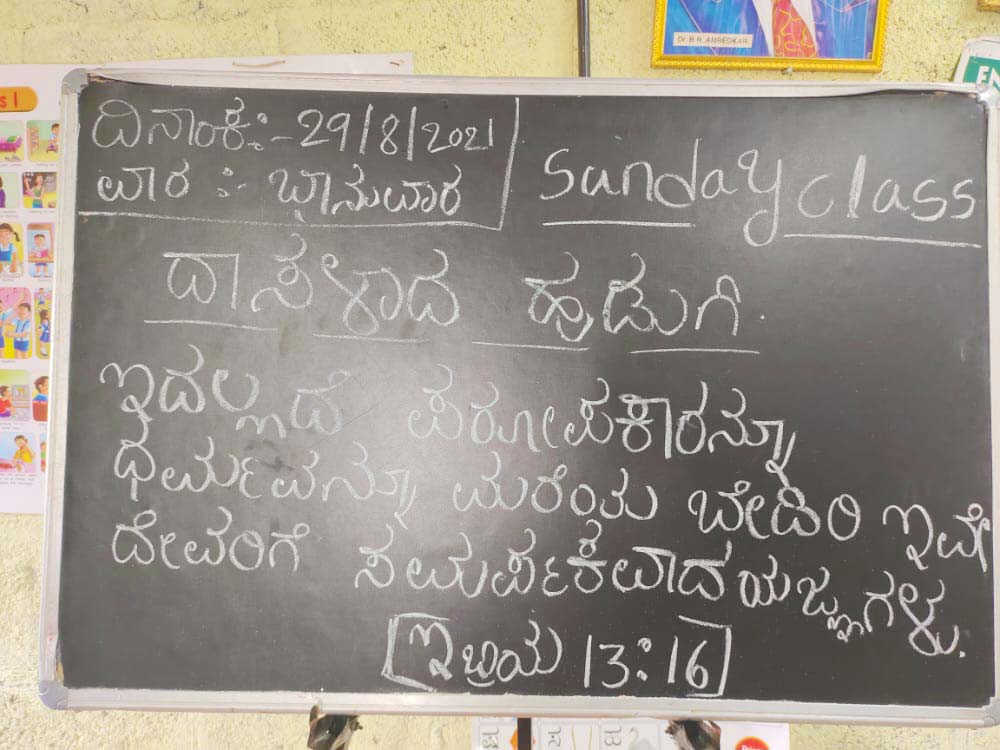 Dr. B.R. AMBEDKAR
EN
s 1
ದಿನಾಂಕ:-29/8/2021
ವಾರ :- ಭಾನುವಾರ
Sunday class
ದಾಸಳಾದ ಹುಡುಗಿ.
ಇದಲ್ಲದೆ ಪರೋಪಕಾರನ್ನೂ
ಧರ್ಮವನ್ನೂ ಮರೆಂತು ಬೇಡಿರಿ ಇವೇ
ದೇವರಿಗೆ ಸಮರ್ಪಕವಾದ ಯಜ್ಞಗಳು.
[ಇಬ್ರಿಯ 13:16]